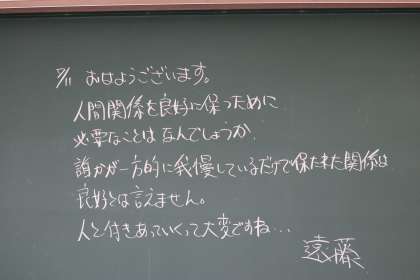 7/11 おはようございます。
人間関係を良好に保つために
必要なことはなんでしょうか。
誰かが一方的に我慢しているだけで保たれた関係は
良好とは言えません。
人と付きあっていくって大変ですね…
遠藤